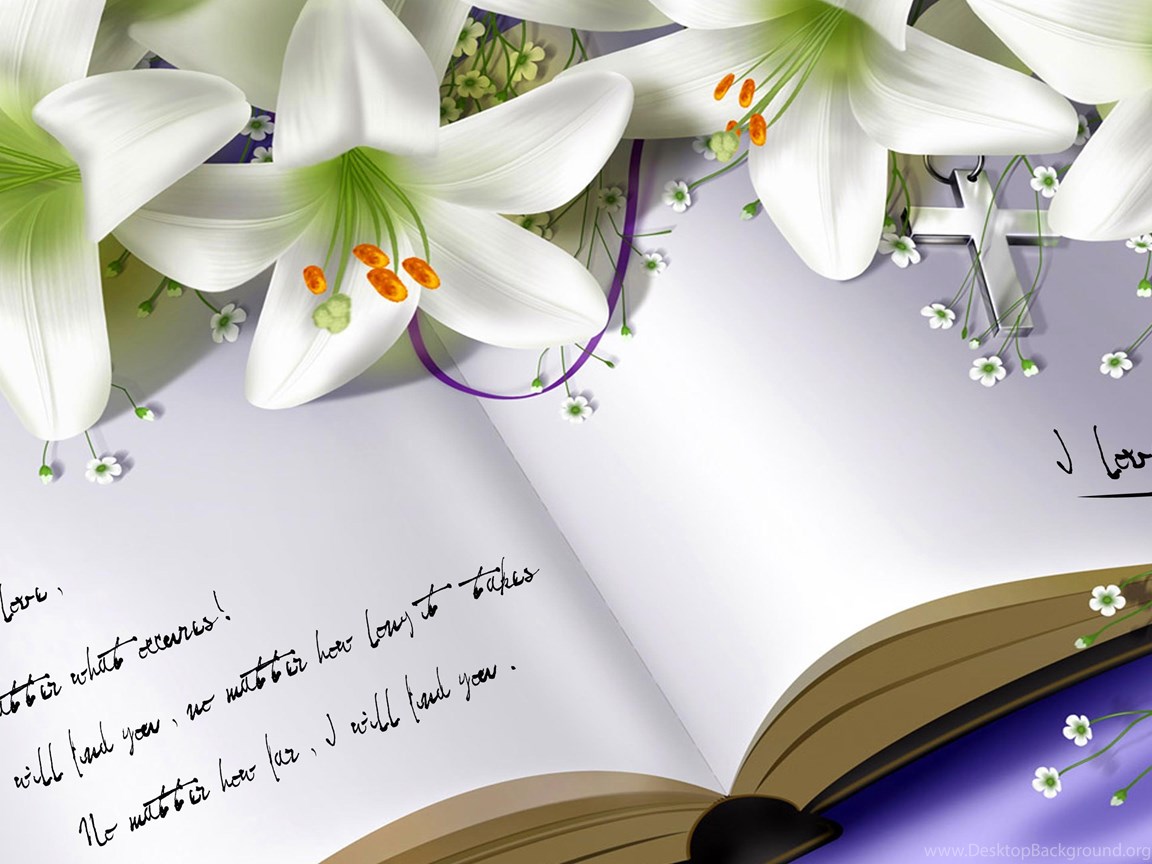 Love,
matter what occures!
will find you, no matter how long it takes
No matter how far, I will find you.
I Love
www.DesktopBackground.org